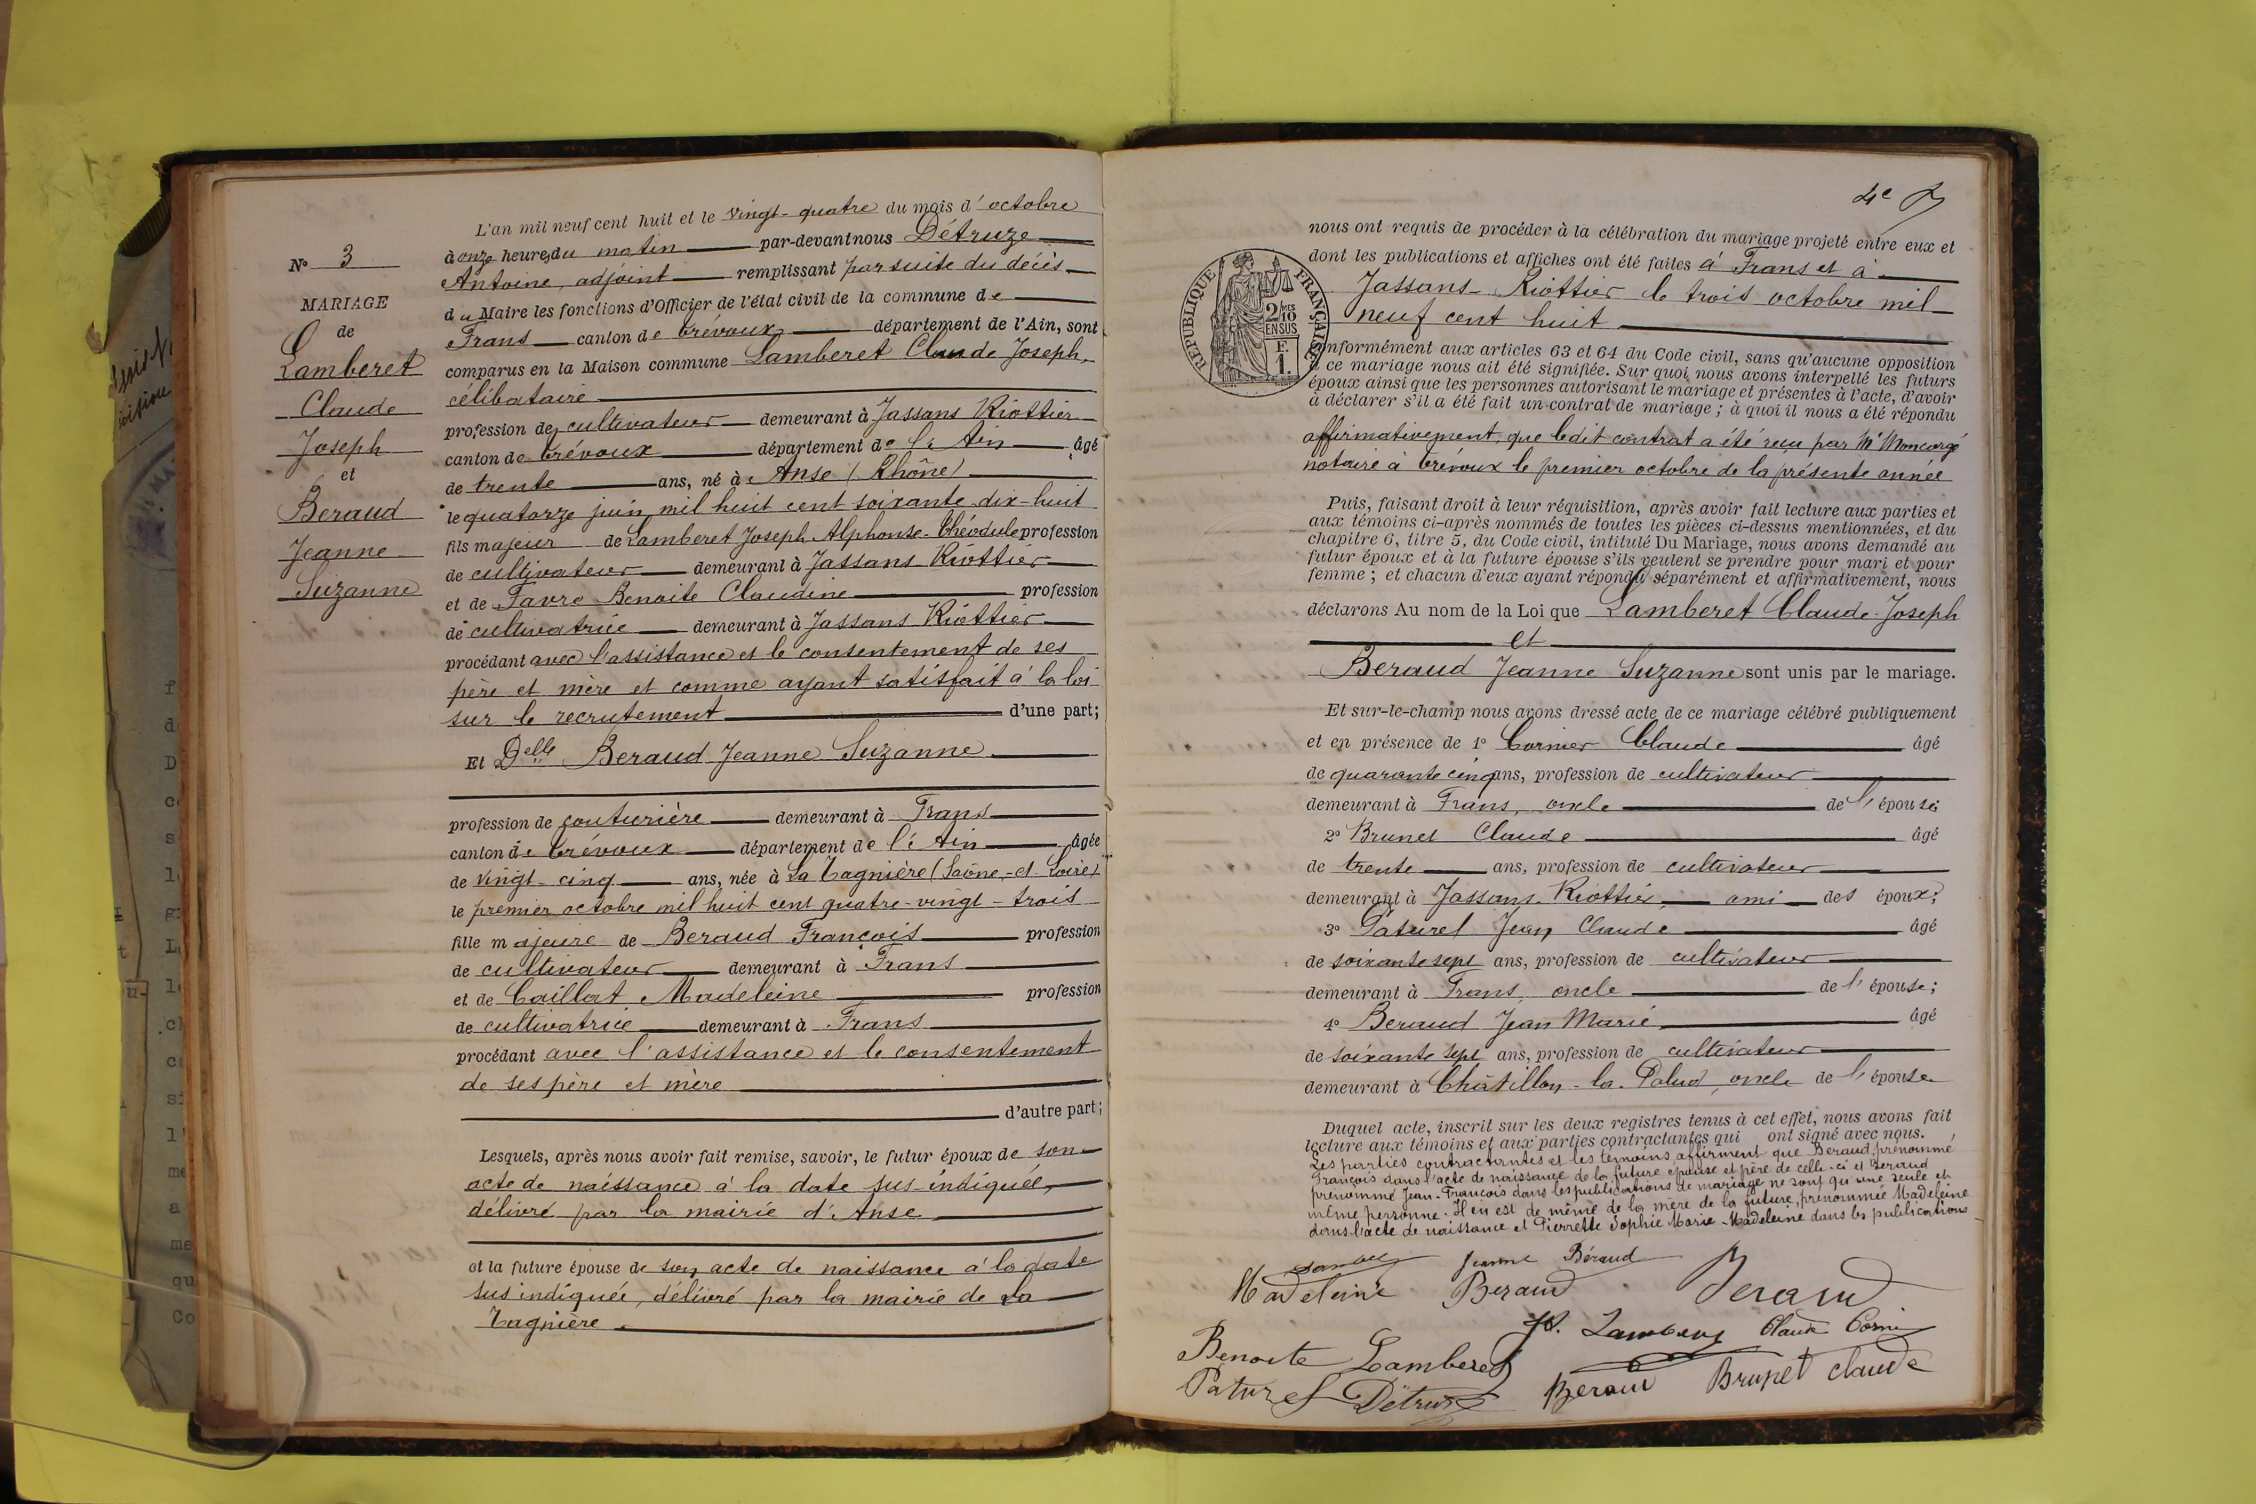 N° 3
MARIAGE
de
Lamberet
Claude
Joseph
et
Beraud
Jeanne
Suzanne
L'an mil neuf cent huit et le vingt-quatre du mois d'octobre
à onze heures du matin par-devant nous Détruze
Antoine, adjoint remplissant par suite du décès
du Maire les fonctions d'Officier de l'état civil de la commune de
Frans canton de Trévoux département de l'Ain, sont
comparus en la Maison commune Lamberet Claude Joseph,
célibataire
profession de cultivateur demeurant à Jassans Riottier
canton de Trévoux département de l'Ain âgé
de trente ans, né à Anse (Rhône)
le quatorze juin mil huit cent soixante-dix-huit
fils majeur de Lamberet Joseph Alphonse-Théodule profession
de cultivateur demeurant à Jassans Riottier
et de Favre Benoite Claudine profession
de cultivatrice demeurant à Jassans Riottier
procédant avec l'assistance et le consentement de ses
père et mère et comme ayant satisfait à la loi
sur le recrutement d'une part;
Et Delle Beraud Jeanne Suzanne
profession de couturière demeurant à Frans
canton de Trévoux département de l'Ain âgée
de vingt-cinq ans, née à La Tagnière (Saône-et-Loire)
le premier octobre mil huit cent quatre-vingt-trois
fille majeure de Beraud François profession
de cultivateur demeurant à Frans
et de Caillat Madeleine profession
de cultivatrice demeurant à Frans
procédant avec l'assistance et le consentement
de ses père et mère
d'autre part;
Lesquels, après nous avoir fait remise, savoir, le futur époux de son
acte de naissance à la date sus-indiquée,
délivré par la mairie d'Anse
et la future épouse de son acte de naissance à la date
sus indiquée, délivré par la mairie de La
Tagnière.
4e
RÉPUBLIQUE FRANÇAISE
2/10
EN SUS
F.
1.
nous ont requis de procéder à la célébration du mariage projeté entre eux et
dont les publications et affiches ont été faites à Frans et à
Jassans-Riottier le trois octobre mil
neuf cent huit
conformément aux articles 63 et 64 du Code civil, sans qu'aucune opposition
à ce mariage nous ait été signifiée. Sur quoi nous avons interpellé les futurs
époux ainsi que les personnes autorisant le mariage et présentes à l'acte, d'avoir
à déclarer s'il a été fait un contrat de mariage; à quoi il nous a été répondu
affirmativement, que ledit contrat a été reçu par Me Moncorgé
notaire à Trévoux le premier octobre de la présente année
Puis, faisant droit à leur réquisition, après avoir fait lecture aux parties et
aux témoins ci-après nommés de toutes les pièces ci-dessus mentionnées, et du
chapitre 6, titre 5, du Code civil, intitulé Du Mariage, nous avons demandé au
futur époux et à la future épouse s'ils veulent se prendre pour mari et pour
femme; et chacun d'eux ayant répondu séparément et affirmativement, nous
déclarons Au nom de la Loi que Lamberet Claude-Joseph
et
Beraud Jeanne Suzanne sont unis par le mariage.
Et sur-le-champ nous avons dressé acte de ce mariage célébré publiquement
et en présence de 1° Cornier Claude âgé
de quarante cinq ans, profession de cultivateur
demeurant à Frans, oncle de l'épouse;
2° Brunet Claude âgé
de trente ans, profession de cultivateur
demeurant à Jassans-Riottier, ami des époux;
3° Paturel Jean Claude âgé
de soixante sept ans, profession de cultivateur
demeurant à Frans, oncle de l'épouse;
4° Beraud Jean Marie âgé
de soixante sept ans, profession de cultivateur
demeurant à Châtillon-la-Palud, oncle de l'épouse
Duquel acte, inscrit sur les deux registres tenus à cet effet, nous avons fait
lecture aux témoins et aux parties contractantes qui ont signé avec nous.
Les parties contractantes et les témoins affirment que Beraud, prénommé
François dans l'acte de naissance de la future épouse et père de celle-ci et Beraud
prénommé Jean-François dans les publications de mariage ne sont qu'une seule et
même personne. Il en est de même de la mère de la future, prénommée Madeleine
dans l'acte de naissance et Pierrette Sophie Marie Madeleine dans les publications
Jeanne Béraud
Madeleine Beraud Beraud
Lamberet Claude Corni
Benoite Lamberet
Beraud Brunet Claude
Paturel Détruze